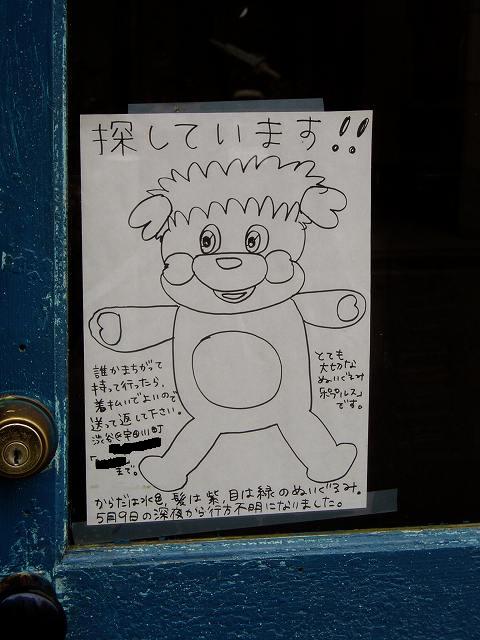 探しています!!
誰かまちがって
持って行ったら、
着払いでよいので
送って返して下さい。
渋谷区宇田川町
「
まで。
とても
大切な
ぬいぐるみ
「ポプルス」
です。
からだは水色,髪は紫,目は緑のぬいぐるみ。
5月9日の深夜から行方不明になりました。